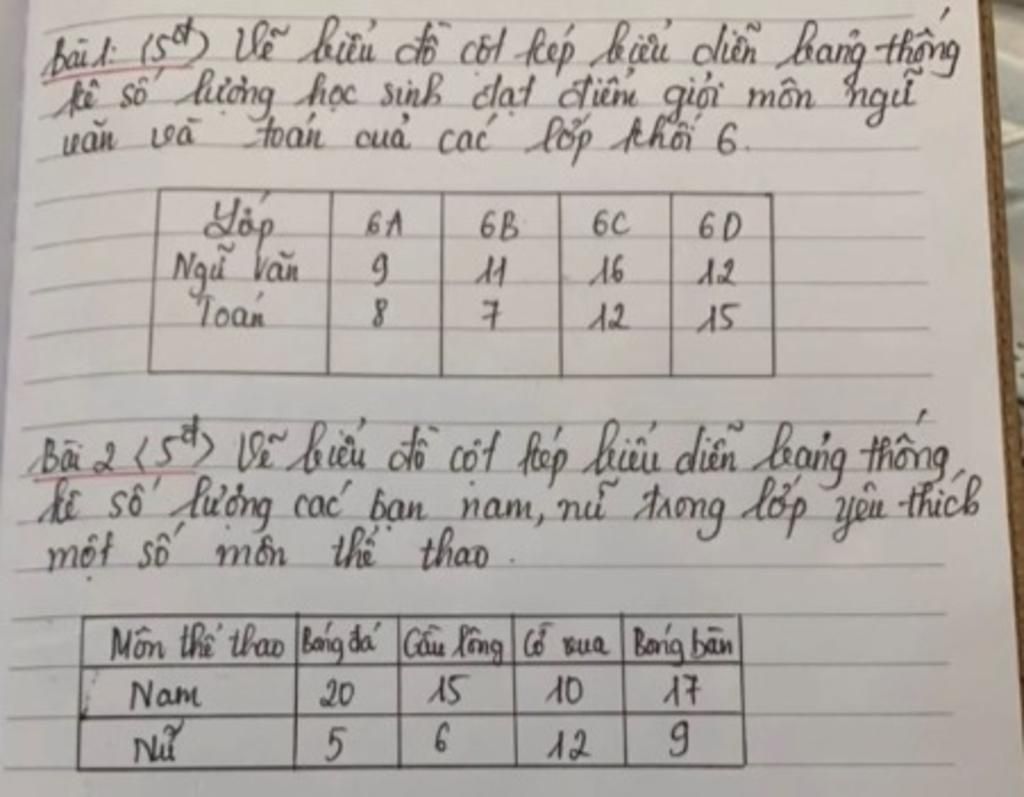 Bài 1: (5đ) Vẽ biểu đồ cột kép biểu diễn bảng thống
kê số lượng học sinh đạt điểm giỏi môn ngữ
văn và toán cuả các lớp khối 6.
Lớp 6A 6B 6C 6D
Ngữ văn 9 11 16 12
Toán 8 7 12 15
Bài 2 (5đ) Vẽ biểu đồ cột kép biểu diễn bảng thống
kê số lượng các bạn nam, nữ trong lớp yêu thích
một số môn thể thao.
Môn thể thao Bóng đá Cầu lông Cờ vua Bóng bàn
Nam 20 15 10 17
Nữ 5 6 12 9